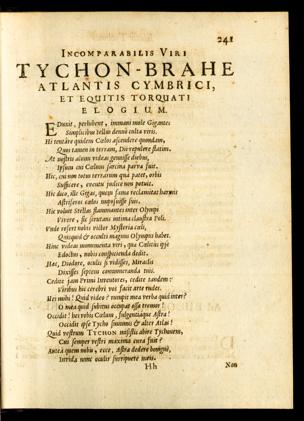 241
INCOMPARABILIS VIRI
TYCHON-BRAHE
ATLANTIS CYMBRICI,
ET EQUITIS TORQUATI
ELOGIUM.
EDuxit, perhibent, immani mole Gigantes
Simplicibus tellus denuò culta viris.
Hi tentare quidem Cœlos ascendere quondam,
Quos tamen in terram, Dis repulere
At nostris aliam videas genuisse diebus,
Ipsum cui Cœlum sarcina parva fuit.
Hic, cui non totus terrarum quà patet, orbis
Sufficere, exutum judice non potuit.
Hic dico, ille Gigas, quem fama reclamitat
Astriferos cœlos
Hic voluit Stellas flammantes inter Olympi
Vivere, sic scrutans intima claustra Poli.
Unde refert nobis villor Mysteria cœli,
Quicquid & occulti magnus Olympus habet.
Hinc videas monumenta viri, qua Cœlitus
Edoctus, nobis conspicienda dedit.
Hæc, Diodore, oculis si vidisses, Miracla
Dixisses septem connumeranda tuis.
Cedite jam Primi Inventores, cedite tandem:
Viribus hic cerebri vos facit arte rudes.
Hei mihi! Quid video? numquid mea verba quid inter?
O mea quid subitus occupat ossa tremor!
Occidit! hei vobis Cœlum, fulgentiaque Astra!
Occidit ipse Tycho summus & alter Atlas!
Quid vestrum TYCHON misistis abire Tychonem,
Cui semper vestri maxima cura fuit?
Antea quem nobis, ecce, Astra dedere benignè,
Invida nunc oculis surripuere meis.
Hh Non